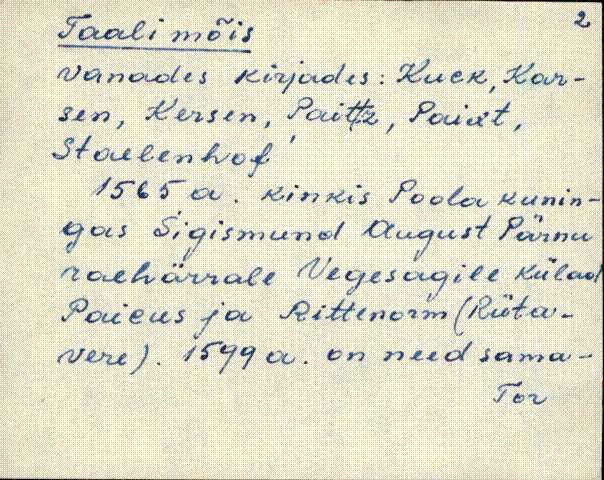 2
Taali mõis
vanades kirjades: Kuck, Kar-
sen, Kersen, Paittz, Paiat,
Staelenhof
1565 a. kinkis Poola kunin-
gas Sigismund August Pärnu
raehärrale Vegesagile külad
Paicus ja Rittenorm (Rüta-
vere). 1599 a. on need sama-
Tor